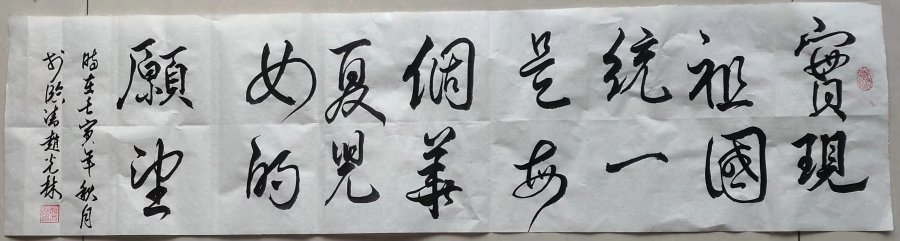 實現
祖國
統一
是每
個華
夏兒
女的
願望
時在壬寅年秋月
於臨清趙光林